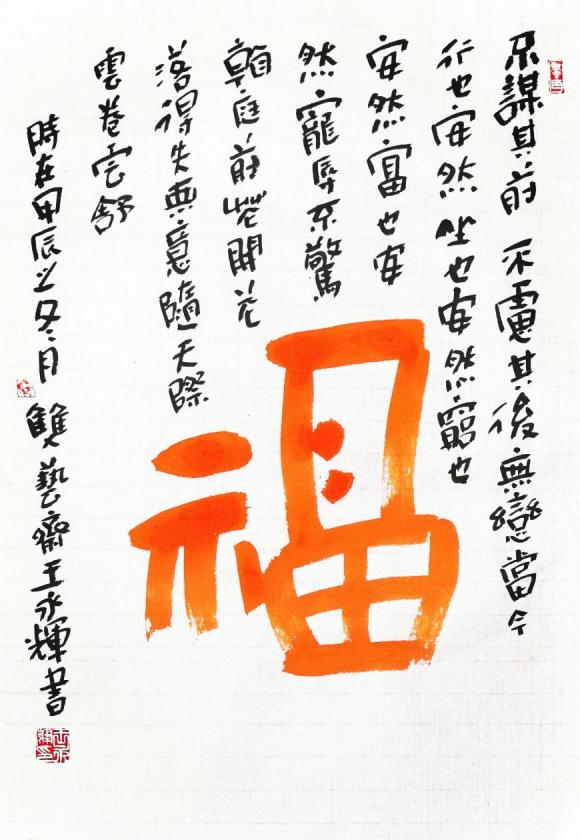 不謀其前 不慮其後無戀當今
行也安然坐也安然窮也
安然富也安
然寵辱不驚
庭前花開花
落得失無意隨天際
雲卷雲舒
福
時在甲辰之冬月 雙藝齋王永輝書